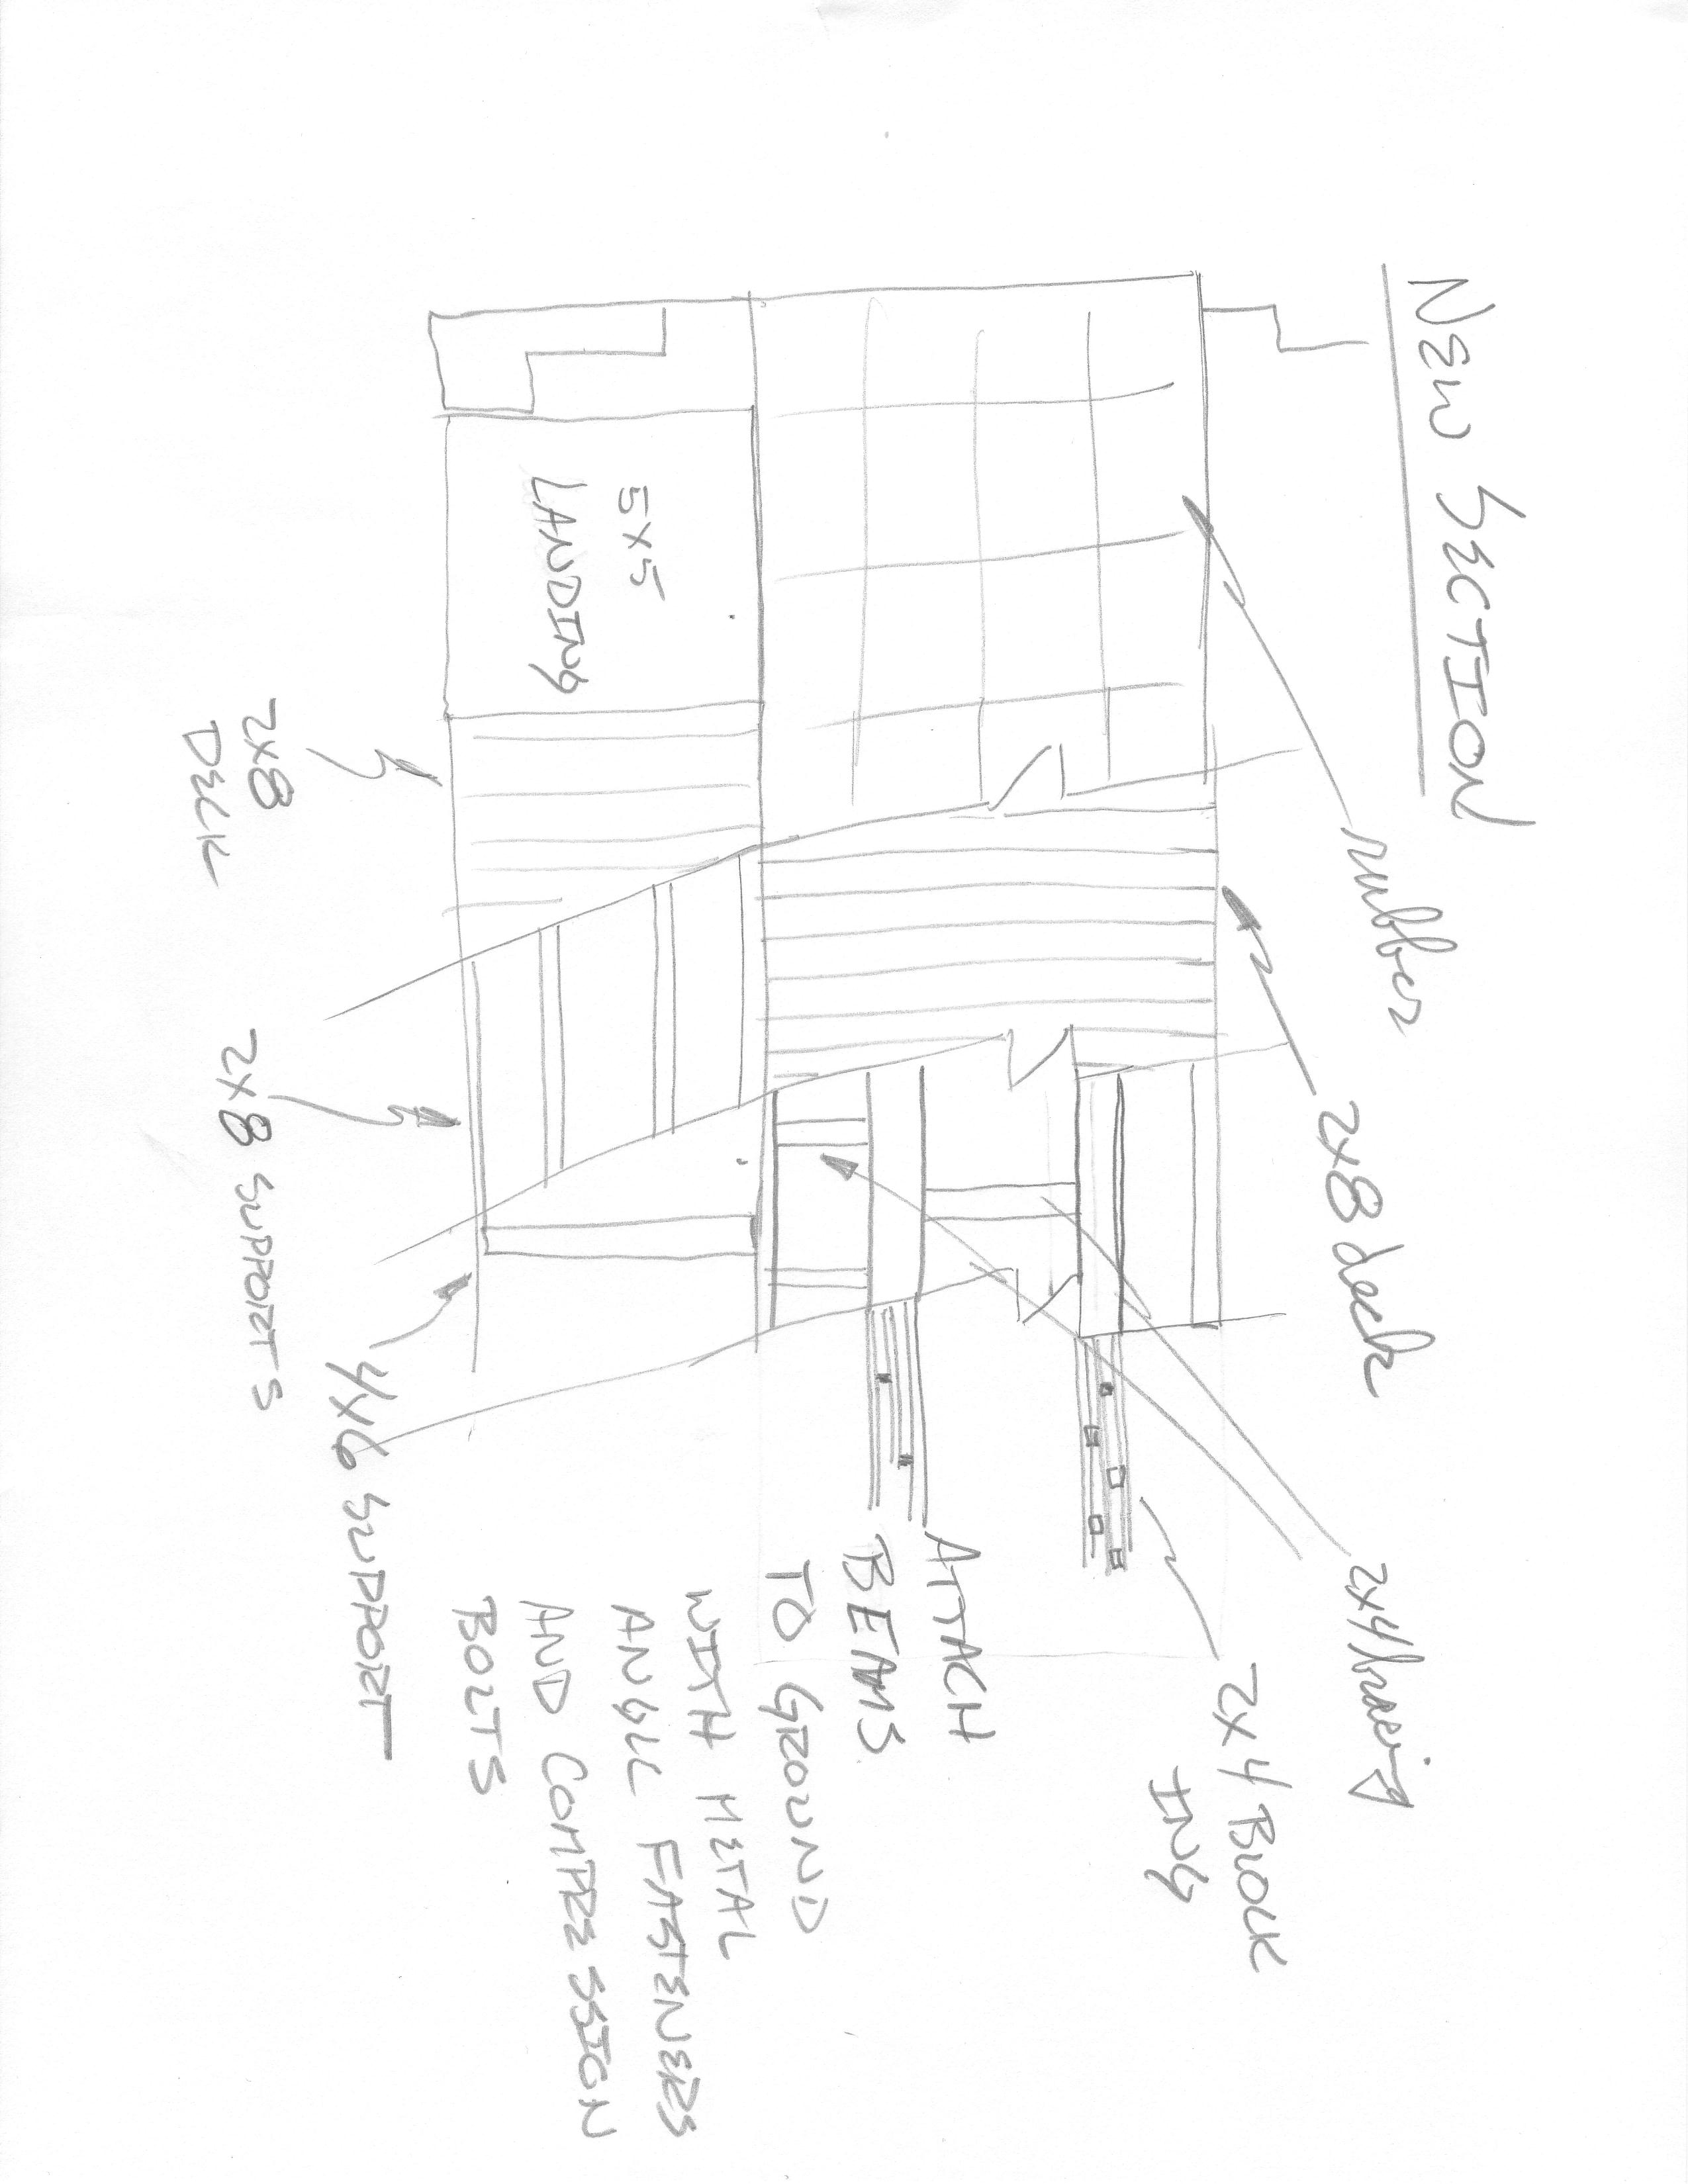 NEW SECTION
rubber
2x8 deck
2x4 bracing
2x4 BLOCK
ING
5x5
LANDING
ATTACH
BEAMS
TO GROUND
WITH METAL
ANGLE FASTENERS
AND COMPRESSION
BOLTS
2x8
DECK
2x8 SUPPORTS
4x6 SUPPORT